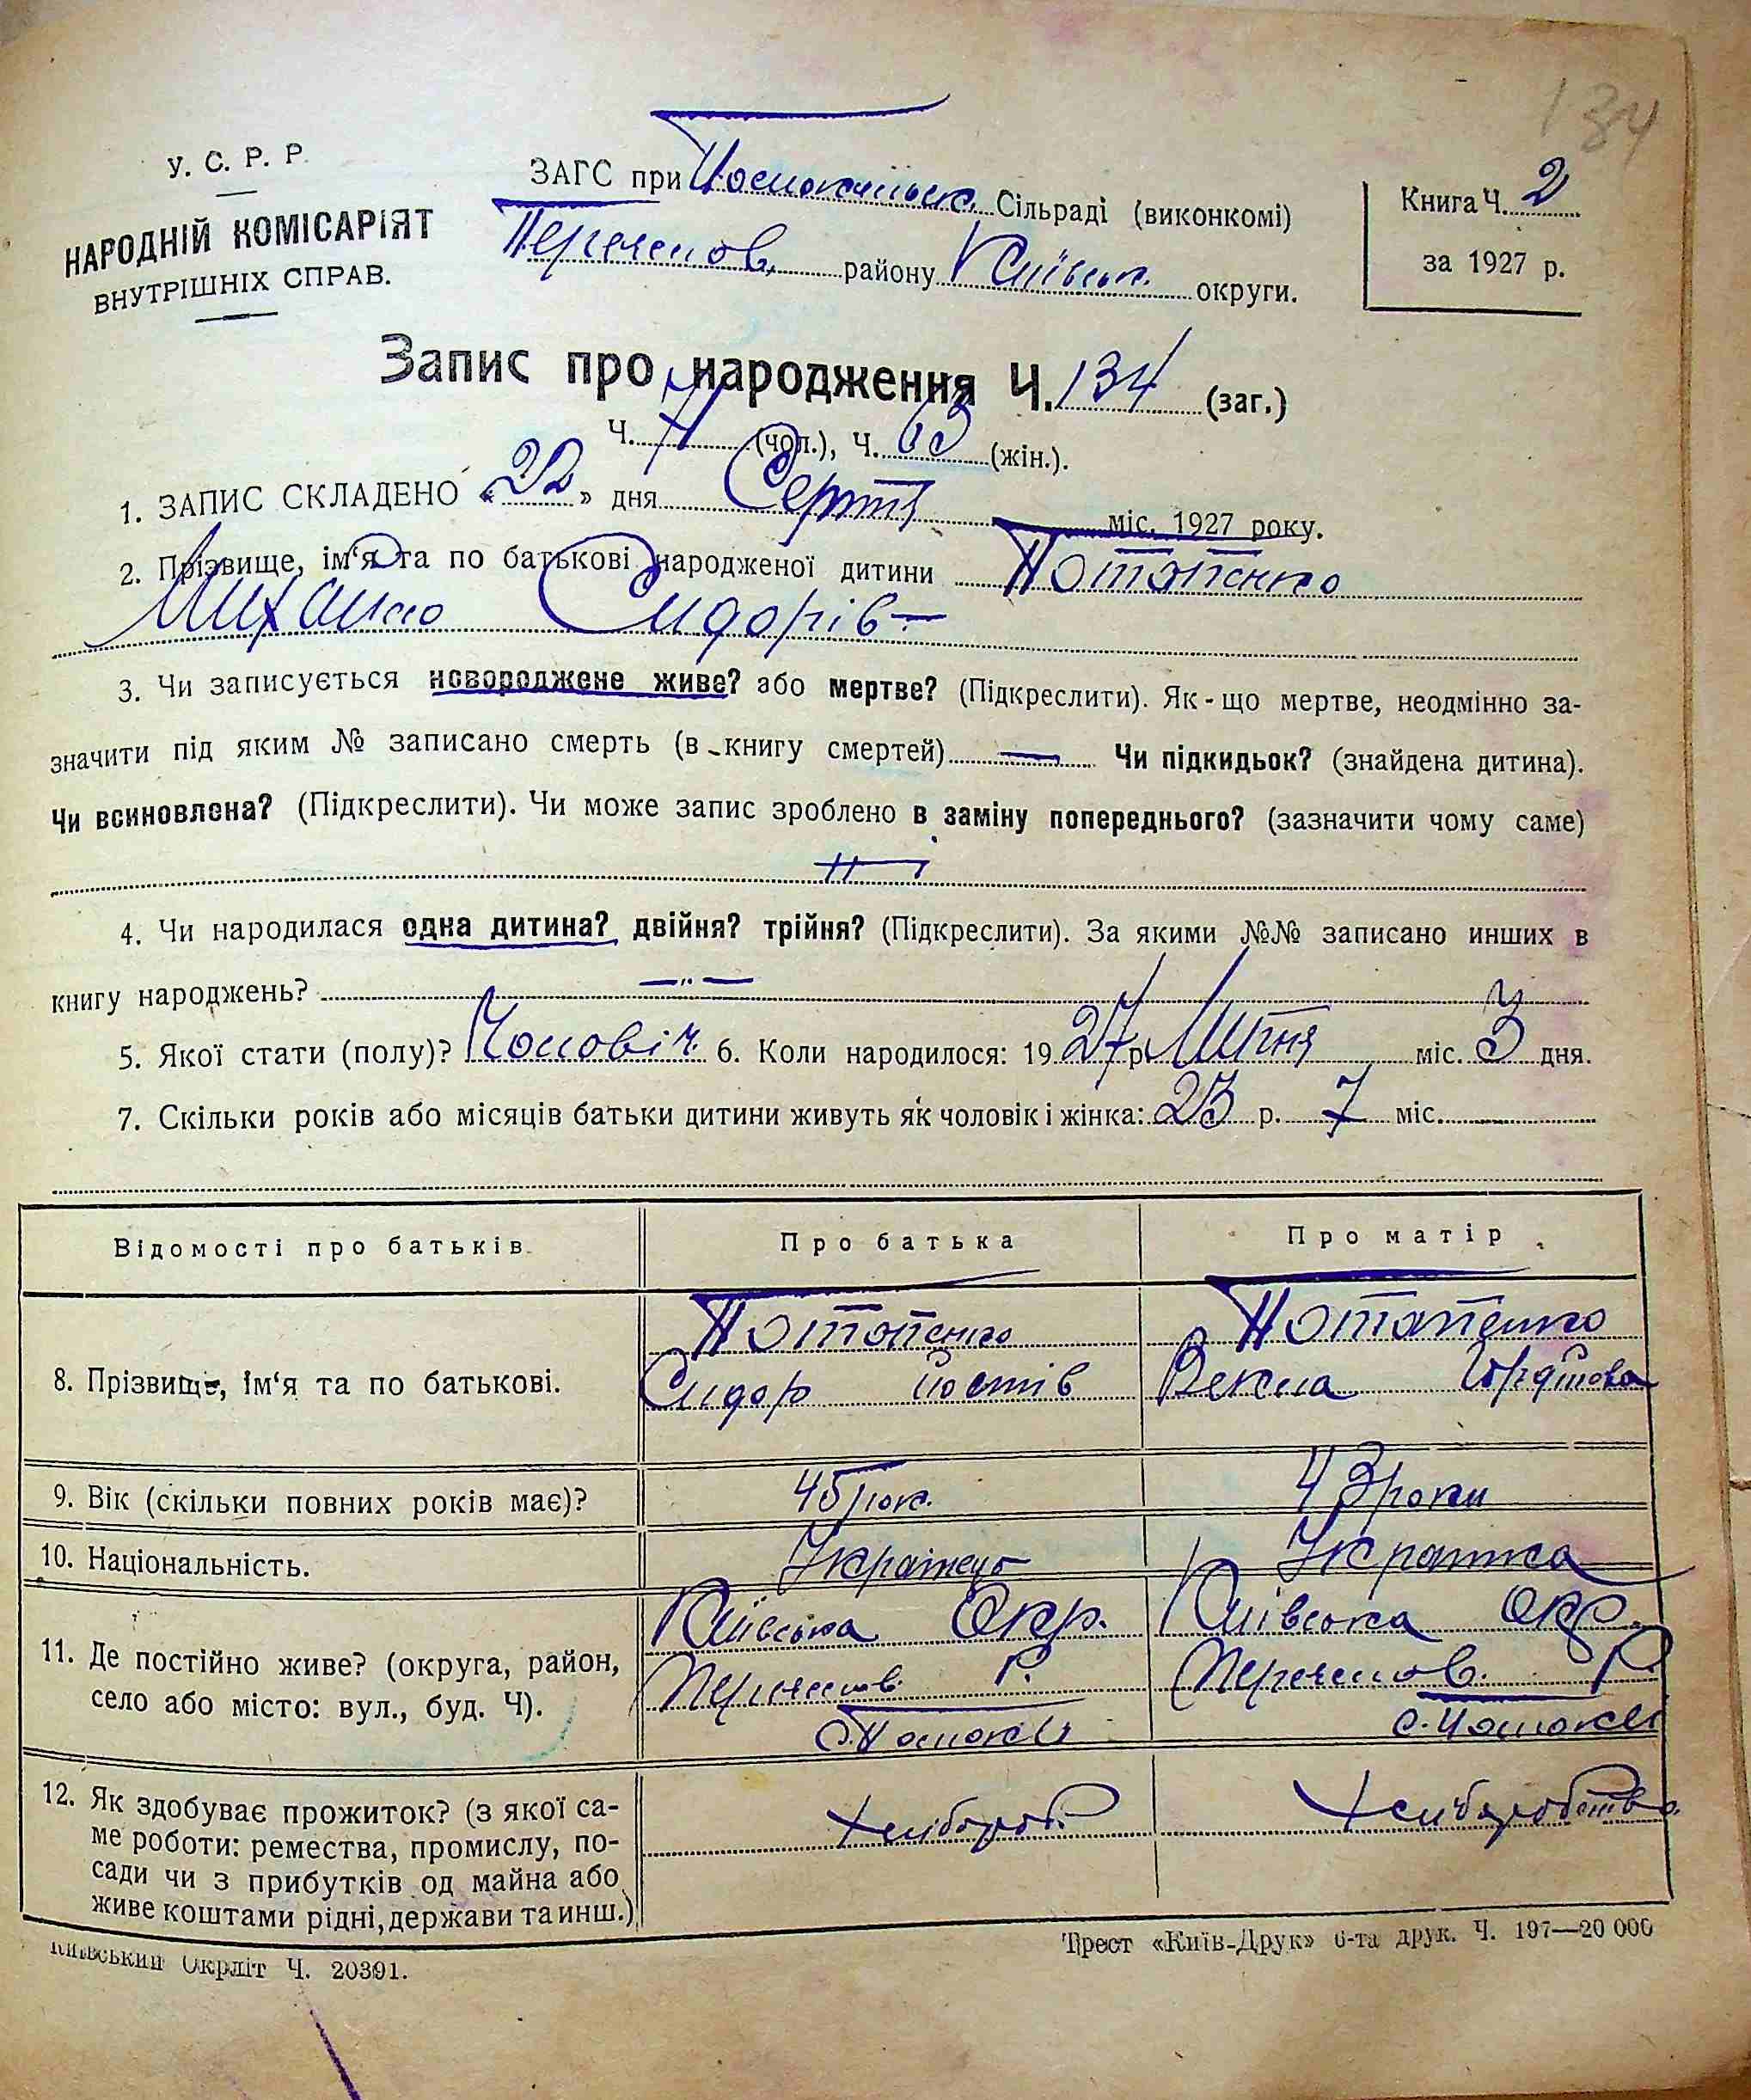 134
У. С. Р. Р.
НАРОДНІЙ КОМІСАРІЯТ
ВНУТРІШНІХ СПРАВ.
ЗАГС при Сільраді (виконкомі)
району Київськ. округи.
Книга Ч. 2
за 1927 р.
Запис про народження Ч. 134 (заг.)
Ч. 71 (чол.), Ч. 63 (жін.).
1. ЗАПИС СКЛАДЕНО «22» дня Серпня міс. 1927 року.
2. Прізвище, ім‘я та по батькові народженої дитини Потапенко
Михайло Сидорів
3. Чи записується новороджене живе? або мертве? (Підкреслити). Як-що мертве, неодмінно за-
значити під яким № записано смерть (в книгу смертей) — Чи підкидьок? (знайдена дитина).
Чи всиновлена? (Підкреслити). Чи може запис зроблено в заміну попереднього? (зазначити чому саме)
4. Чи народилася одна дитина? двійня? трійня? (Підкреслити). За якими №№ записано инших в
книгу народжень? —„—
5. Якої стати (полу)? Чоловіч. 6. Коли народилося: 1927 р. Липня міс. 3 дня.
7. Скільки років або місяців батьки дитини живуть як чоловік і жінка: 23 р. 7 міс.
Відомості про батьків. Про батька Про матір
8. Прізвище, ім‘я та по батькові. Потапенко Потапенко
Сидор Векла
9. Вік (скільки повних років має)? 45 рок. 43 роки
10. Національність. Українець Українка
11. Де постійно живе? (округа, район,
село або місто: вул., буд. Ч).
Київська Окр. Київська окр.
Р. Р.
12. Як здобуває прожиток? (з якої са-
ме роботи: ремества, промислу, по-
сади чи з прибутків од майна або
живе коштами рідні, держави та инш.)
Хлібороб. Хліборобство
Київський Окрліт Ч. 20391.
Трест «Київ-Друк» 6-та друк. Ч. 197—20 000